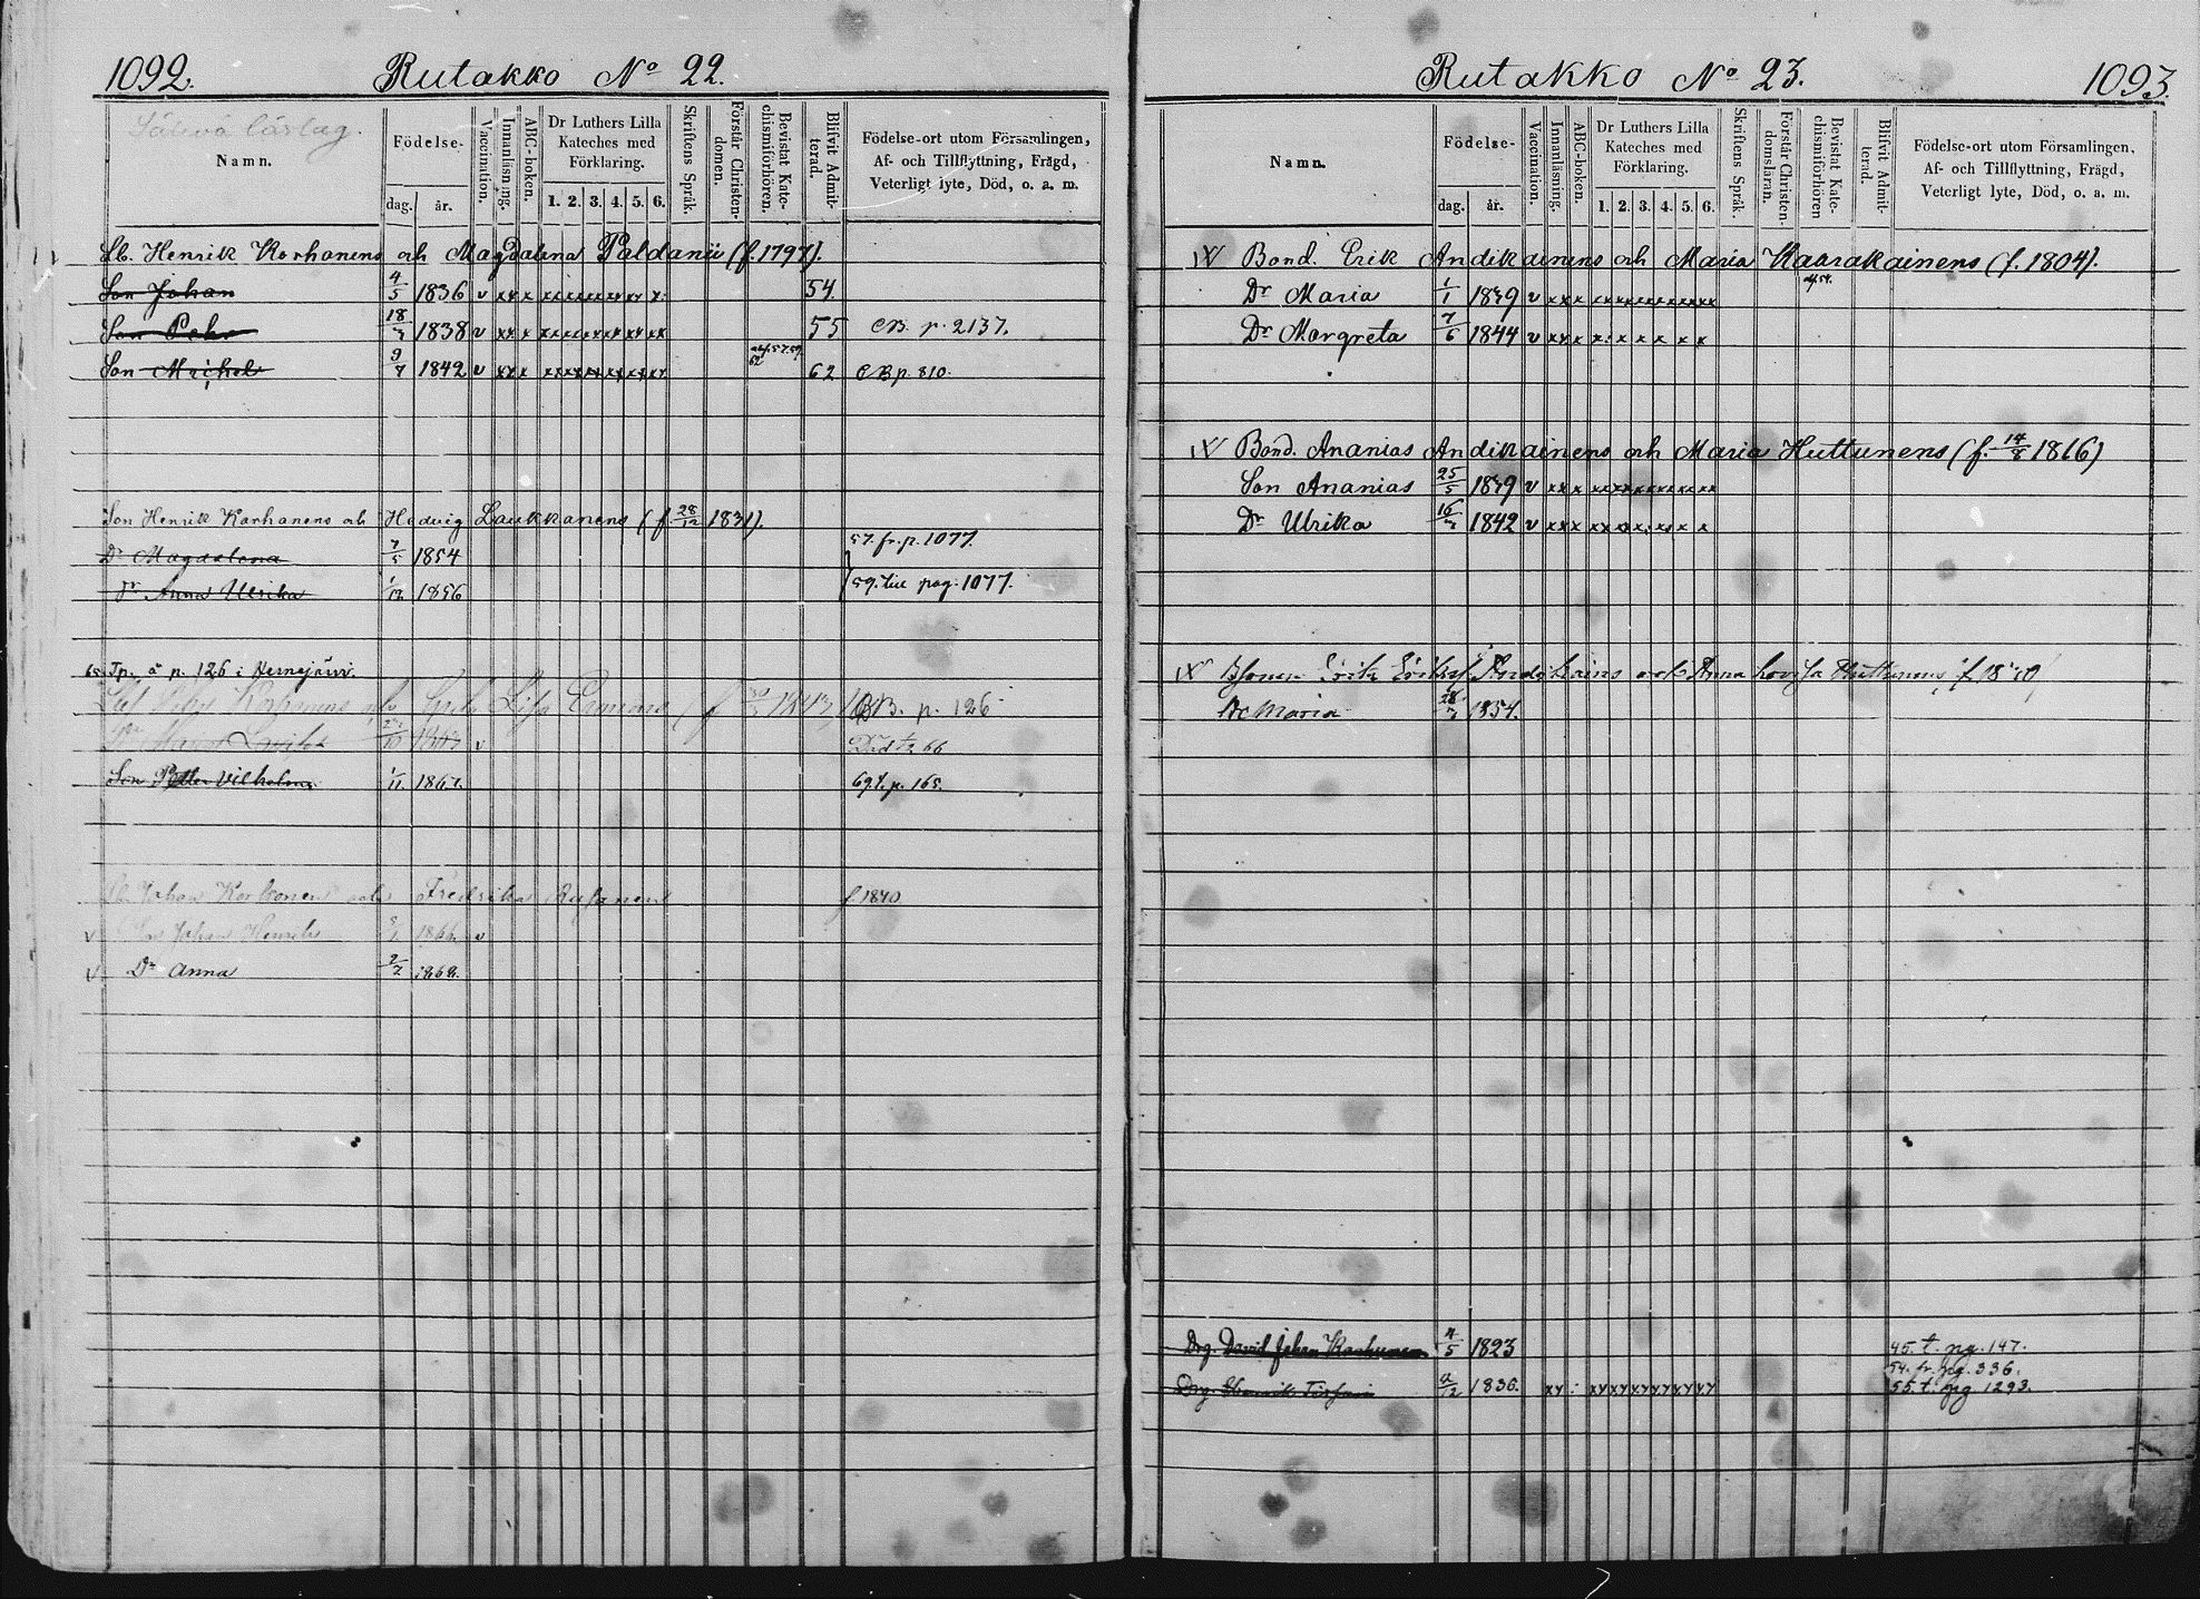 1092. Rutakko No 22.
Sälevä läslag.
Namn.
Födelse-
dag.
år.
Vaccination.
Innanläsning.
ABC-boken.
Dr Luthers Lilla Kateches med Förklaring.
1. 2. 3. 4. 5. 6.
Skriftens Språk.
Förstår Christendomen.
Bevistat Katechismiförhören.
Blifvit Admitterad.
Födelse-ort utom Församlingen,
Af- och Tillflyttning, Frägd,
Veterligt lyte, Död, o. a. m.
Lb. Henrik Korhonens och Magdalena Paldanii (f. 1797).
Son Johan 4/5 1836 v xx x xxxxxxxxxxx 54.
Son Pehr 18/7 1838 v xx x xxxxxxxxxxxx 55 CB. p. 2137.
Son Michel 9/7 1842 v xx x xxxxxxxxxxxx 62 CB p. 810.
Son Henrik Korhonens och Hedvig Laukkanens (f. 28/12 1831).
57. fr. p. 1077.
Dr Magdalena 7/5 1854
Dr Anna Ulrika 1/12 1856 59. till pag. 1077.
65. Tp. å p. 126 i Hernejärvi.
Korhonens Lisa BB. p. 126
Död 66
Son Petter Vilhelm 1/11 1867. 69. t. p. 165.
Lb. Johan Korhonens och Fredrika f. 1840
v Son Johan Henrik 1866 v
v Dr Anna 2/2 1868.
Rutakko No 23. 1093.
Namn.
Födelse-
dag.
år.
Vaccination.
Innanläsning.
ABC-boken.
Dr Luthers Lilla Kateches med Förklaring.
1. 2. 3. 4. 5. 6.
Skriftens Språk.
Förstår Christendomsläran.
Bevistat Katechismiförhören
Blifvit Admitterad.
Födelse-ort utom Församlingen,
Af- och Tillflyttning, Frägd,
Veterligt lyte, Död, o. a. m.
Bond. Erik Andikainens och Maria Kaarakainens (f. 1804).
Dr Maria 1/1 1839 v xxx xxxxxxxxxxxx
Dr Margreta 7/6 1844 v xxx x x x x x x
Bond. Ananias Andikainens och Maria Huttunens (f. 14/8 1816)
Son Ananias 25/5 1839 v xx x xxxxxxxxxxx
Dr Ulrika 16/7 1842 v xxx xxxxxxx x x
Bsonen Erik Andikains och Anna Lovisa Huttunens f. 1830
Dr Maria 28/7 1854.
Drg. David Johan Korhonen 4/5 1823 45. t. pg. 147.
54. fr. pg. 336.
Drg. Henrik 4/12 1836. xx xxxxxxxxxxxx 55. t. pg 1293.